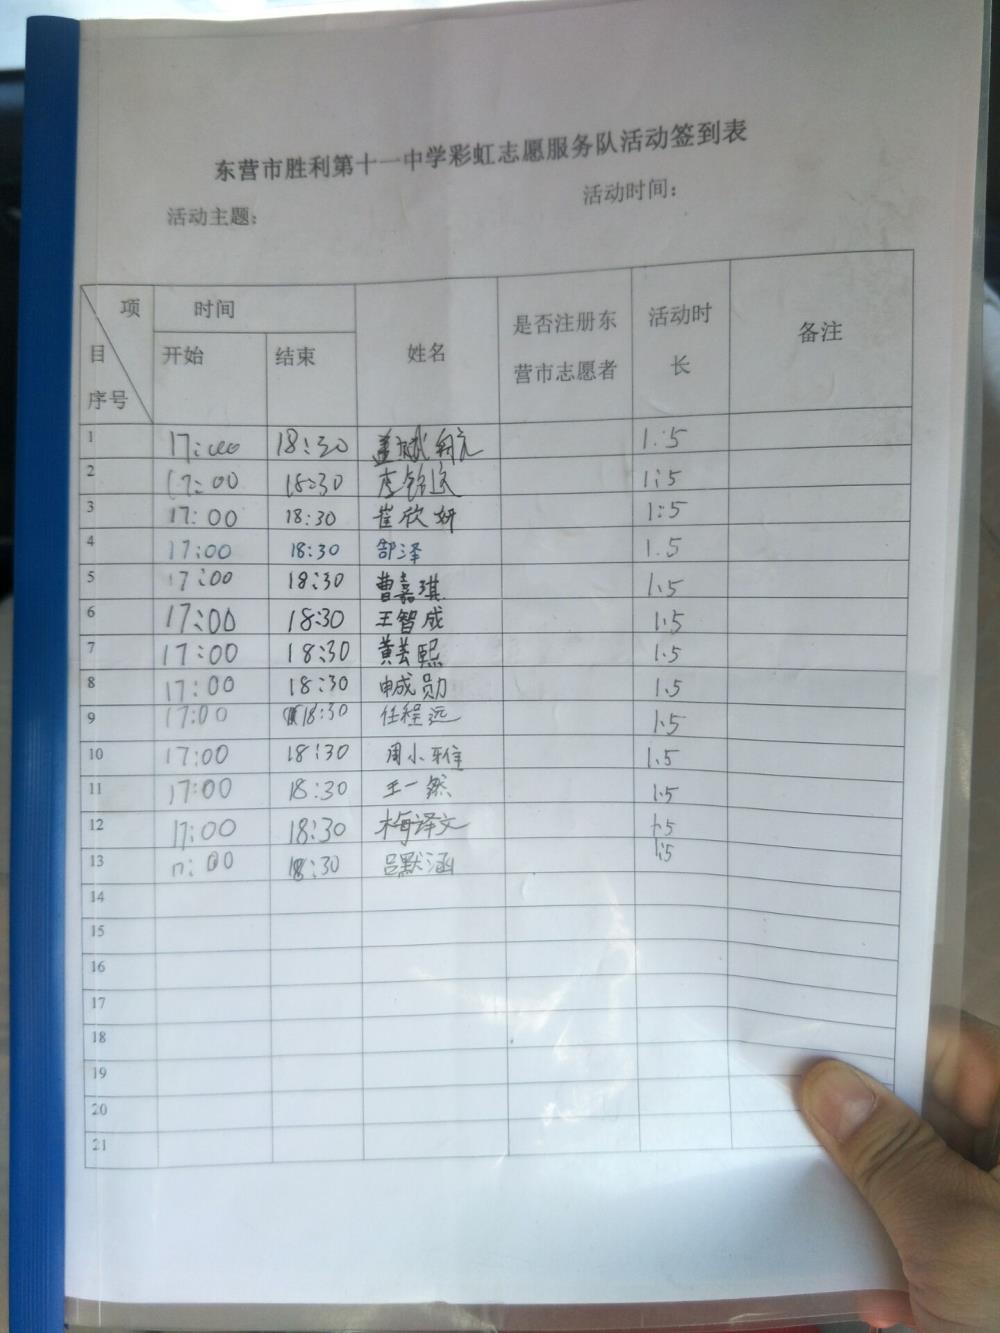 东营市胜利第十一中学彩虹志愿服务队活动签到表
活动主题： 活动时间：
项 目 序号 时间 开始 结束 姓名 是否注册东营市志愿者 活动时长 备注
1 17:00 18:30 1:5
2 17:00 18:30 1:5
3 17:00 18:30 崔欣妍 1:5
4 17:00 18:30 郜泽 1.5
5 17:00 18:30 曹嘉琪 1.5
6 17:00 18:30 王智成 1.5
7 17:00 18:30 黄美熙 1.5
8 17:00 18:30 申成勋 1.5
9 17:00 18:30 任程远 1.5
10 17:00 18:30 周小雅 1.5
11 17:00 18:30 王一然 1.5
12 17:00 18:30 梅译文 1.5
13 17:00 18:30 吕默涵 1.5
14
15
16
17
18
19
20
21